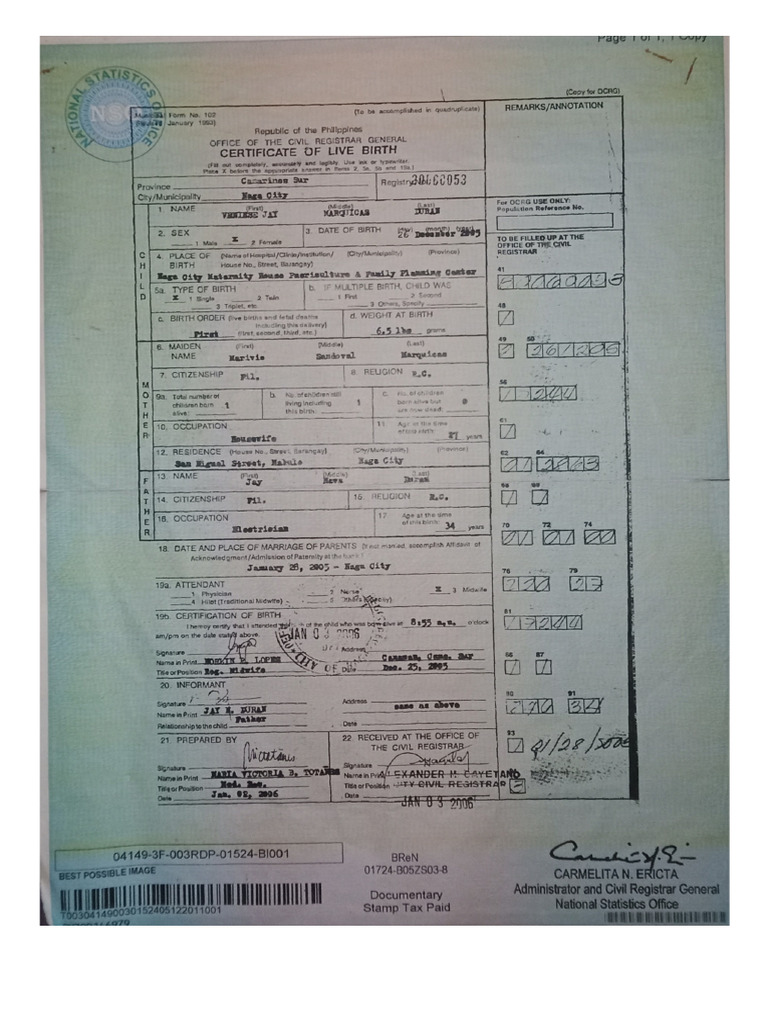 Page 1 of 1, 1 Copy
NATIONAL STATISTICS OFFICE
NSO
(Copy for OCRG)
Form No. 102
January 1993)
(To be accomplished in quadruplicate)
REMARKS/ANNOTATION
Republic of the Philippines
OFFICE OF THE CIVIL REGISTRAR GENERAL
CERTIFICATE OF LIVE BIRTH
(Fill out completely, accurately and legibly. Use ink or typewriter.
Place X before the appropriate answer in items 2, 5a, 5b and 19a.)
Province Camarines Sur
City/Municipality Naga City
For OCRG USE ONLY:
Population Reference No.
1. NAME (First) (Middle) (Last)
VENIESE JAY MARQUICAS DURAN
2. SEX
1 Male X 2 Female
3. DATE OF BIRTH (day) (month) (year)
26 December 2005
TO BE FILLED UP AT THE
OFFICE OF THE CIVIL
REGISTRAR
CHILD
4. PLACE OF BIRTH (Name of Hospital/Clinic/Institution/ House No., Street, Barangay) (City/Municipality) (Province)
Naga City Maternity House Puericulture & Family Planning Center
5a. TYPE OF BIRTH
X 1 Single 2 Twin
3 Triplet, etc.
b. IF MULTIPLE BIRTH, CHILD WAS
1 First 2 Second
3 Others, Specify
c. BIRTH ORDER (live births and fetal deaths
including this delivery)
First (first, second, third, etc.)
d. WEIGHT AT BIRTH
6.5 lbs grams
MOTHER
6. MAIDEN NAME (First) (Middle) (Last)
Marivie Sandoval Marquicas
7. CITIZENSHIP Fil.
8. RELIGION R.C.
9a. Total number of
children born
alive: 1
b. No. of children still
living including
this birth: 1
c. No. of children
born alive but
are now dead: 0
10. OCCUPATION
Housewife
11. Age at the time
of this birth: 27 years
12. RESIDENCE (House No., Street, Barangay) (City/Municipality) (Province)
San Miguel Street, Mabolo Naga City
FATHER
13. NAME (First) (Middle) (Last)
Jay Duran
14. CITIZENSHIP Fil.
15. RELIGION R.C.
16. OCCUPATION
Electrician
17. Age at the time
of this birth: 34 years
18. DATE AND PLACE OF MARRIAGE OF PARENTS (If not married, accomplish Affidavit of
Acknowledgment/Admission of Paternity at the back)
January 28, 2005 - Naga City
19a. ATTENDANT
1 Physician 2 Nurse X 3 Midwife
4 Hilot (Traditional Midwife)
19b. CERTIFICATION OF BIRTH
I hereby certify that I attended the birth of the child who was born alive at 8:55 a.m. o'clock
am/pm on the date stated above.
JAN 03 2006
Signature
Name in Print LOPES
Title or Position Reg. Midwife
Address Canaman, Cam. Sur
Date Dec. 25, 2005
20. INFORMANT
Signature
Name in Print JAY N. DURAN
Relationship to the child Father
Address same as above
Date
21. PREPARED BY
Signature
Name in Print MARIA VICTORIA B. TOTAÑES
Title or Position Med. Rec.
Date Jan. 02, 2006
22. RECEIVED AT THE OFFICE OF
THE CIVIL REGISTRAR
Signature
Name in Print ALEXANDER H. CAYETANO
Title or Position CITY CIVIL REGISTRAR
Date JAN 03 2006
04149-3F-003RDP-01524-BI001
BEST POSSIBLE IMAGE
T003041490030152405122011001
BReN
01724-B05ZS03-8
Documentary
Stamp Tax Paid
CARMELITA N. ERICTA
Administrator and Civil Registrar General
National Statistics Office